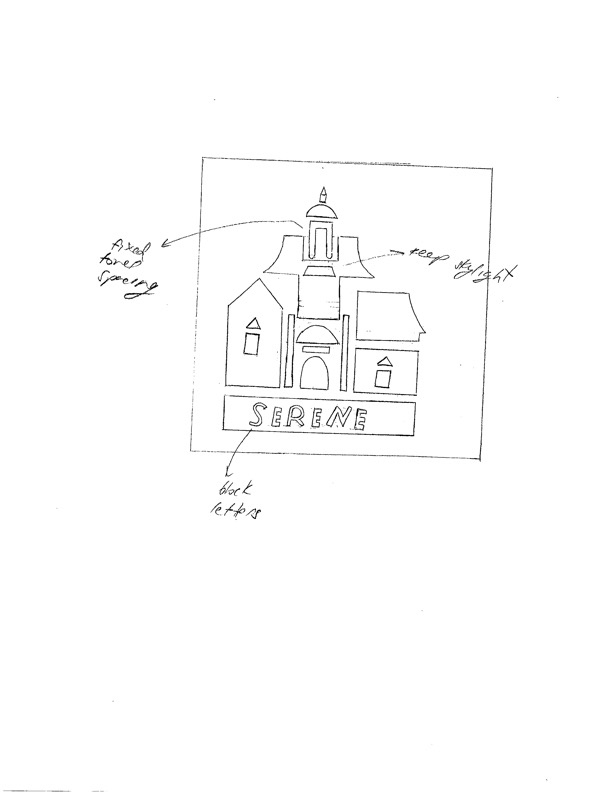 fixed
tower
spacing
keep skylight
SERENE
block
letters